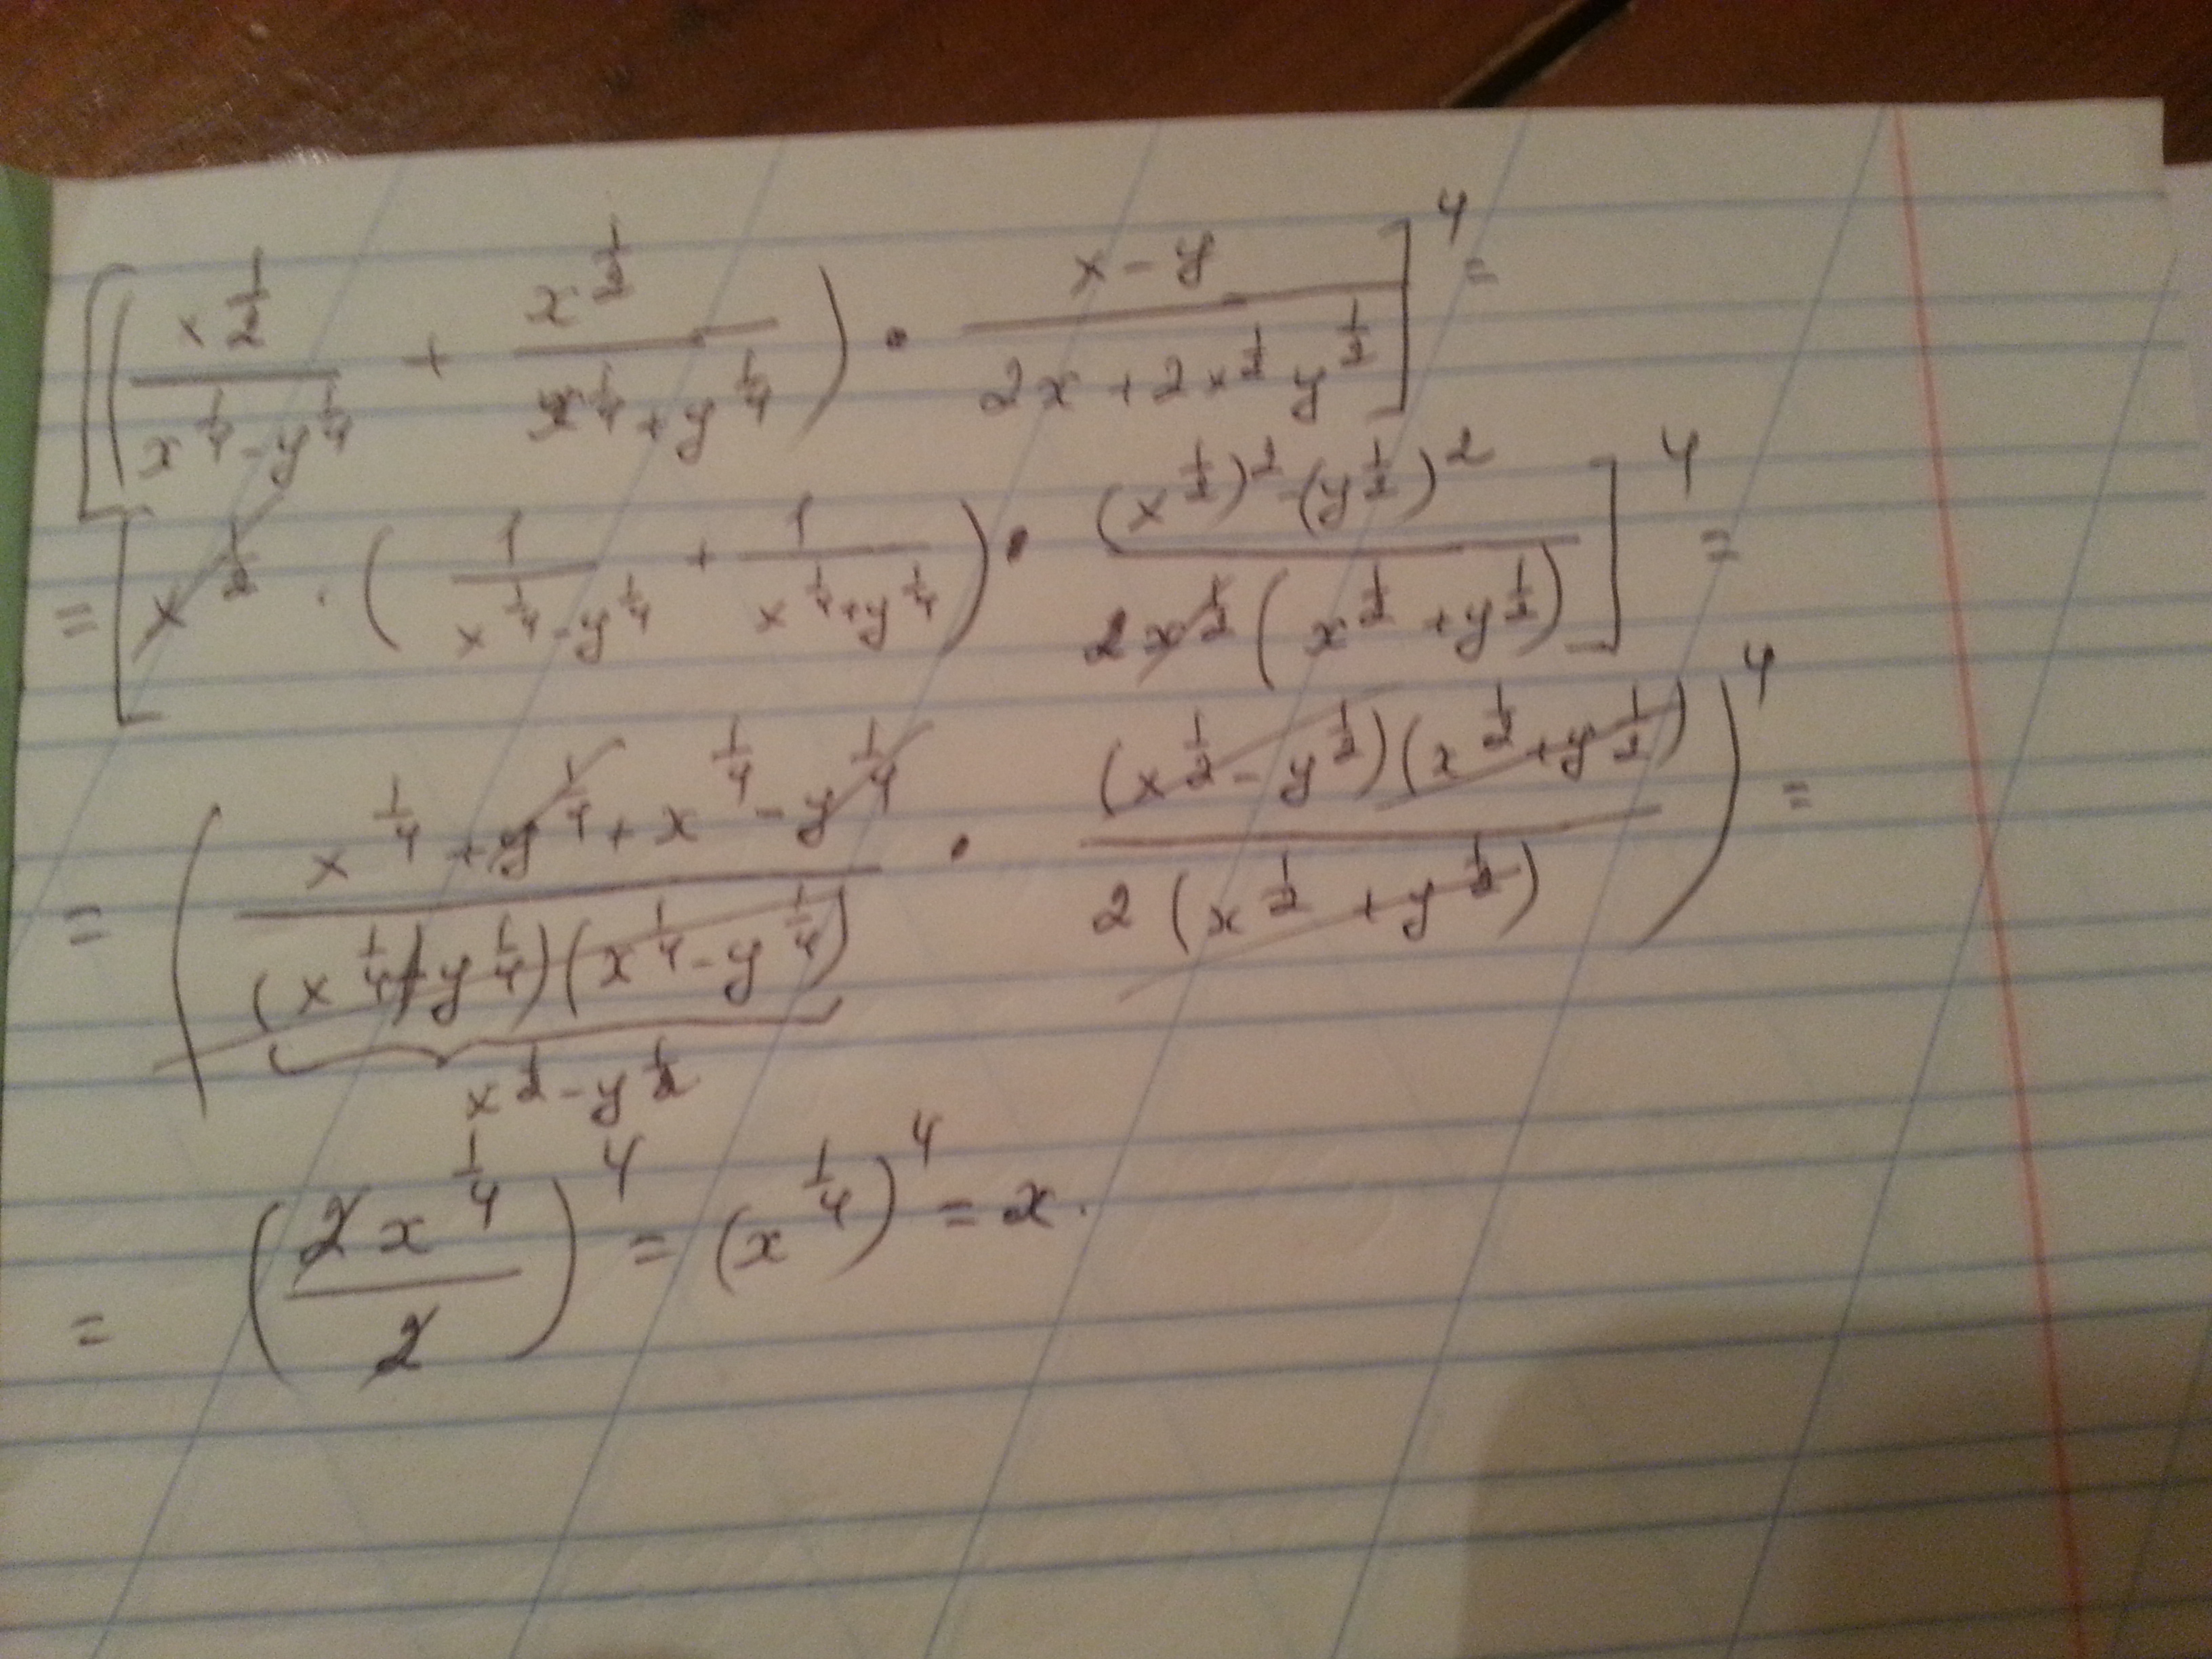 [(x^{1/2}/(x^{1/4} - y^{1/4}) + x^{1/2}/(x^{1/4} + y^{1/4})) · (x - y)/(2x + 2x^{1/2} y^{1/2})]^4 =
= [x^{1/2} · (1/(x^{1/4} - y^{1/4}) + 1/(x^{1/4} + y^{1/4})) · ((x^{1/2})^2 - (y^{1/2})^2)/(2x^{1/2}(x^{1/2} + y^{1/2}))]^4 =
= ((x^{1/4} + y^{1/4} + x^{1/4} - y^{1/4})/((x^{1/4} + y^{1/4})(x^{1/4} - y^{1/4})) · ((x^{1/2} - y^{1/2})(x^{1/2} + y^{1/2}))/(2(x^{1/2} + y^{1/2})))^4 =
x^{1/2} - y^{1/2}
= (2x^{1/4}/2)^4 = (x^{1/4})^4 = x.